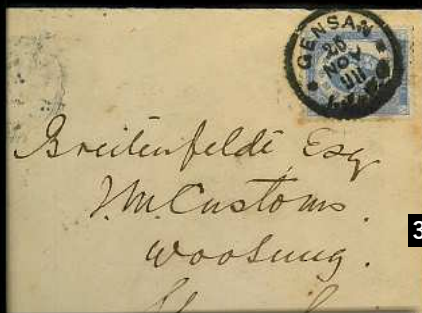 GENSAN
20
NOV
Breitenfeldt, Esq
I.M.Customs.
Woosung.
3